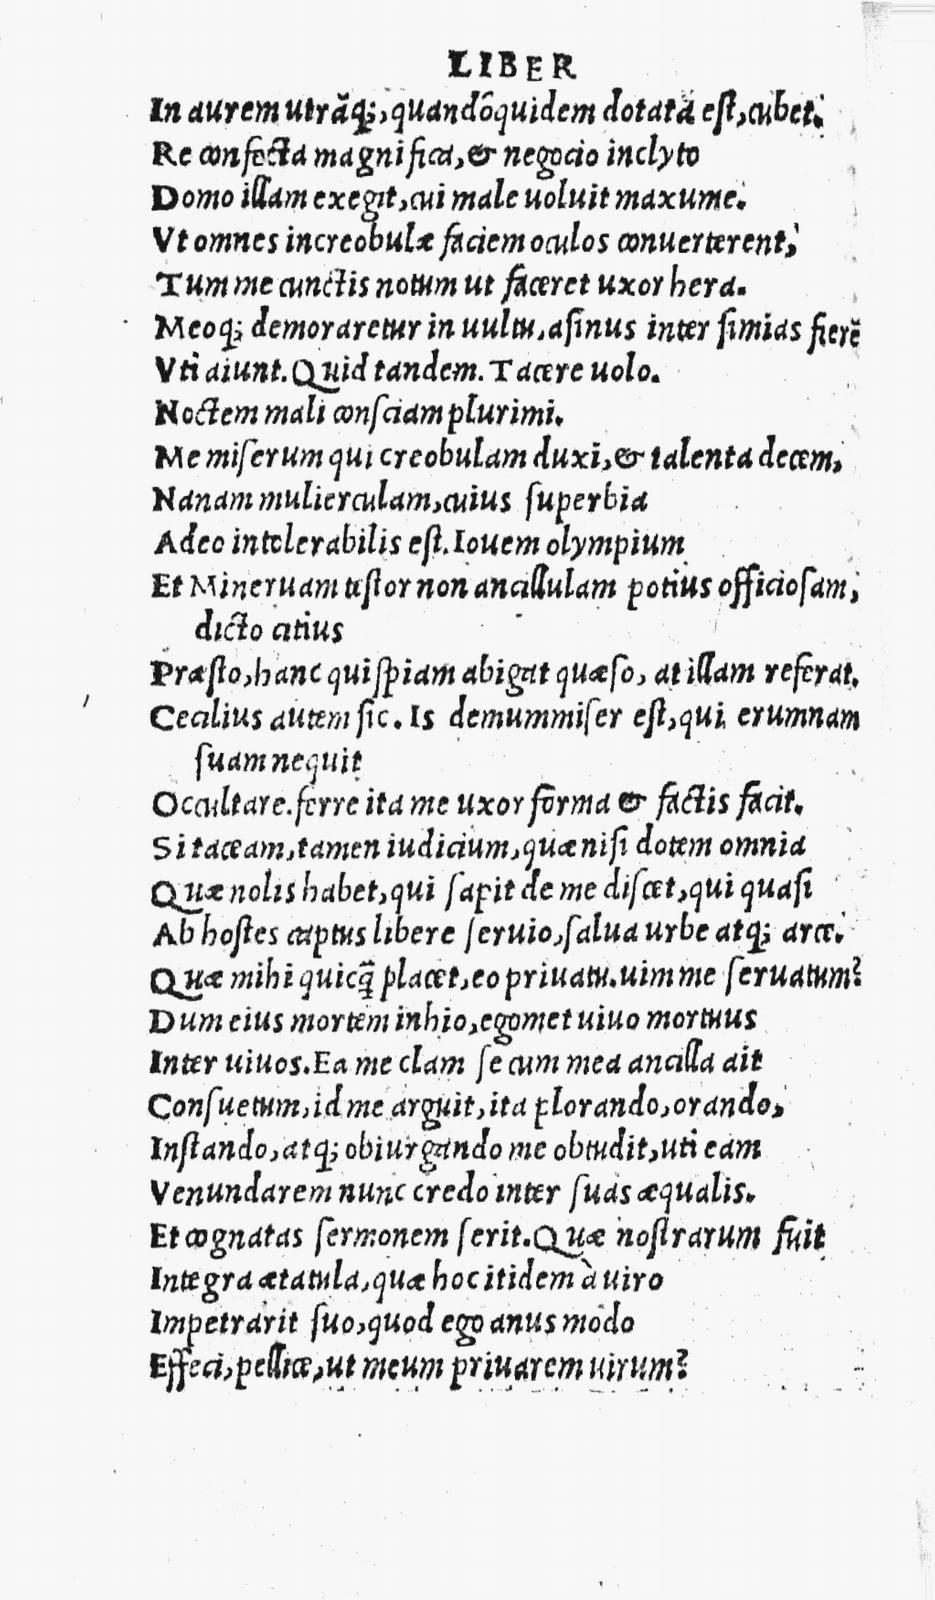 LIBER
In aurem utrãq;, quandõquidem dotata est, cubet.
Re confecta magnifica, & negocio inclyto
Domo illam exegit, cui male uoluit maxume.
Vt omnes in creobulæ faciem oculos conuerterent,
Tum me cunctis notum ut faceret uxor hera.
Meoq; demoraretur in uultu, asinus inter simias fierẽ
Vti aiunt. Quid tandem. Tacere uolo.
Noctem mali consciam plurimi.
Me miserum qui creobulam duxi, & talenta decem,
Nanam mulierculam, cuius superbia
Adeo intolerabilis est. Iouem olympium
Et Mineruam testor non ancillulam potius officiosam,
dicto citius
Præsto, hanc quispiam abigat quæso, at illam referat.
Cecilius autem sic. Is demum miser est, qui erumnam
suam nequit
Occultare. ferre ita me uxor forma & factis facit.
Si taceam, tamen iudicium, quæ nisi dotem omnia
Quæ nolis habet, qui sapit de me discet, qui quasi
Ab hostes captus libere seruio, salua urbe atq; arce.
Quæ mihi quicq̃ placet, eo priuatu. uim me seruatum?
Dum eius mortem inhio, egomet uiuo mortuus
Inter uiuos. Ea me clam se cum mea ancilla ait
Consuetum, id me arguit, ita plorando, orando,
Instando, atq; obiurgando me obtudit, uti eam
Venundarem nunc credo inter suas æqualis.
Et cognatas sermonem serit. Quæ nostrarum fuit
Integra ætatula, quæ hoc itidem à uiro
Impetrarit suo, quod ego anus modo
Effeci, pellice, ut meum priuarem uirum?